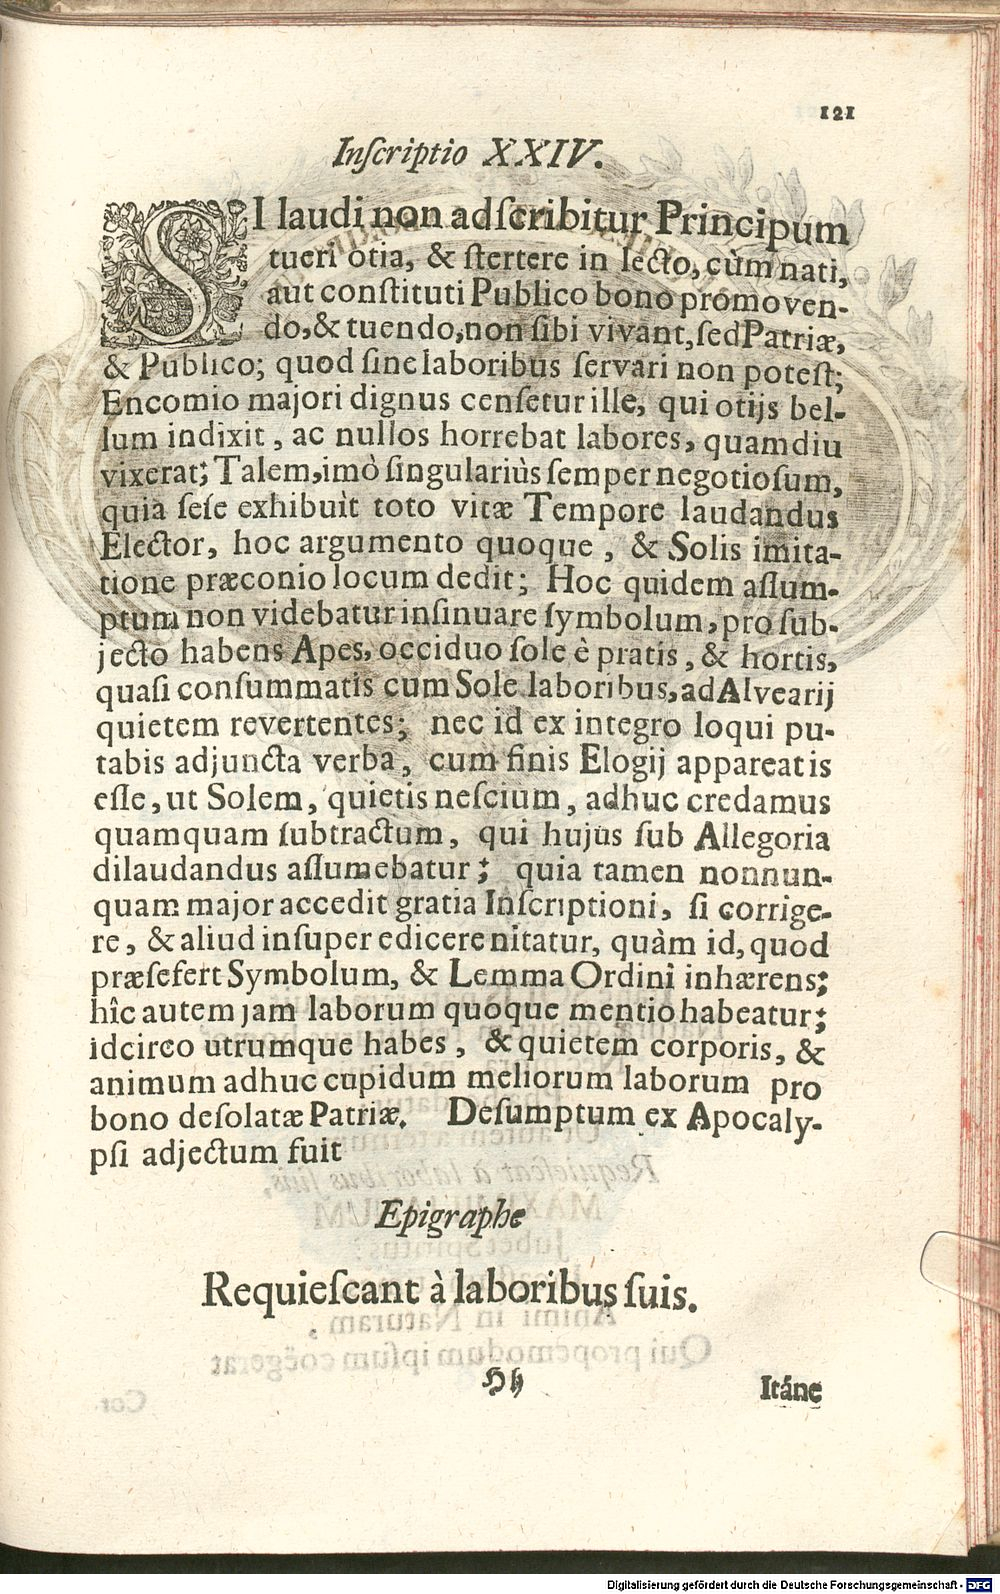 121
Inſcriptio XXIV.
SI laudi non adſcribitur Principum
tueri otia, & ſtertere in lecto, cùm nati,
aut conſtituti Publico bono promoven-
do, & tuendo, non ſibi vivant, ſed Patriæ,
& Publico; quod ſine laboribus ſervari non poteſt;
Encomio majori dignus cenſetur ille, qui otijs bel-
lum indixit, ac nullos horrebat labores, quamdiu
vixerat; Talem, imò ſingulariùs ſemper negotioſum,
quia ſeſe exhibuit toto vitæ Tempore laudandus
Elector, hoc argumento quoque, & Solis imita-
tione præconio locum dedit; Hoc quidem aſſum-
ptum non videbatur inſinuare ſymbolum, pro ſub-
jecto habens Apes, occiduo ſole è pratis, & hortis,
quaſi conſummatis cum Sole laboribus, ad Alvearij
quietem revertentes; nec id ex integro loqui pu-
tabis adjuncta verba, cum finis Elogij appareat is
eſſe, ut Solem, quietis neſcium, adhuc credamus
quamquam ſubtractum, qui hujus ſub Allegoria
dilaudandus aſſumebatur; quia tamen nonnun-
quam major accedit gratia Inſcriptioni, ſi corrige-
re, & aliud inſuper edicere nitatur, quàm id, quod
præſefert Symbolum, & Lemma Ordini inhærens;
hîc autem jam laborum quoque mentio habeatur;
idcirco utrumque habes, & quietem corporis, &
animum adhuc cupidum meliorum laborum pro
bono deſolatæ Patriæ. Deſumptum ex Apocaly-
pſi adjectum fuit
Epigraphe
Requieſcant à laboribus ſuis.
Hh
Itáne
Digitalisierung gefördert durch die Deutsche Forschungsgemeinschaft - DFG